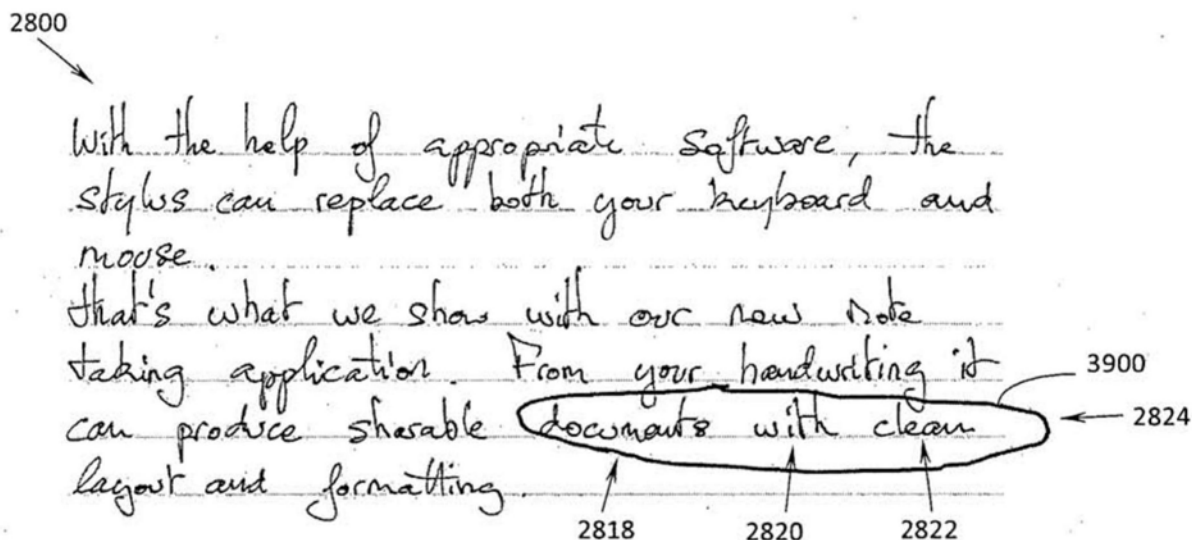 2800
With the help of appropriate software, the
stylus can replace both your keyboard and
mouse.
that's what we show with our new note
taking application. From your handwriting it
3900
can produce sharable documents with clean
2824
layout and formatting.
2818 2820 2822